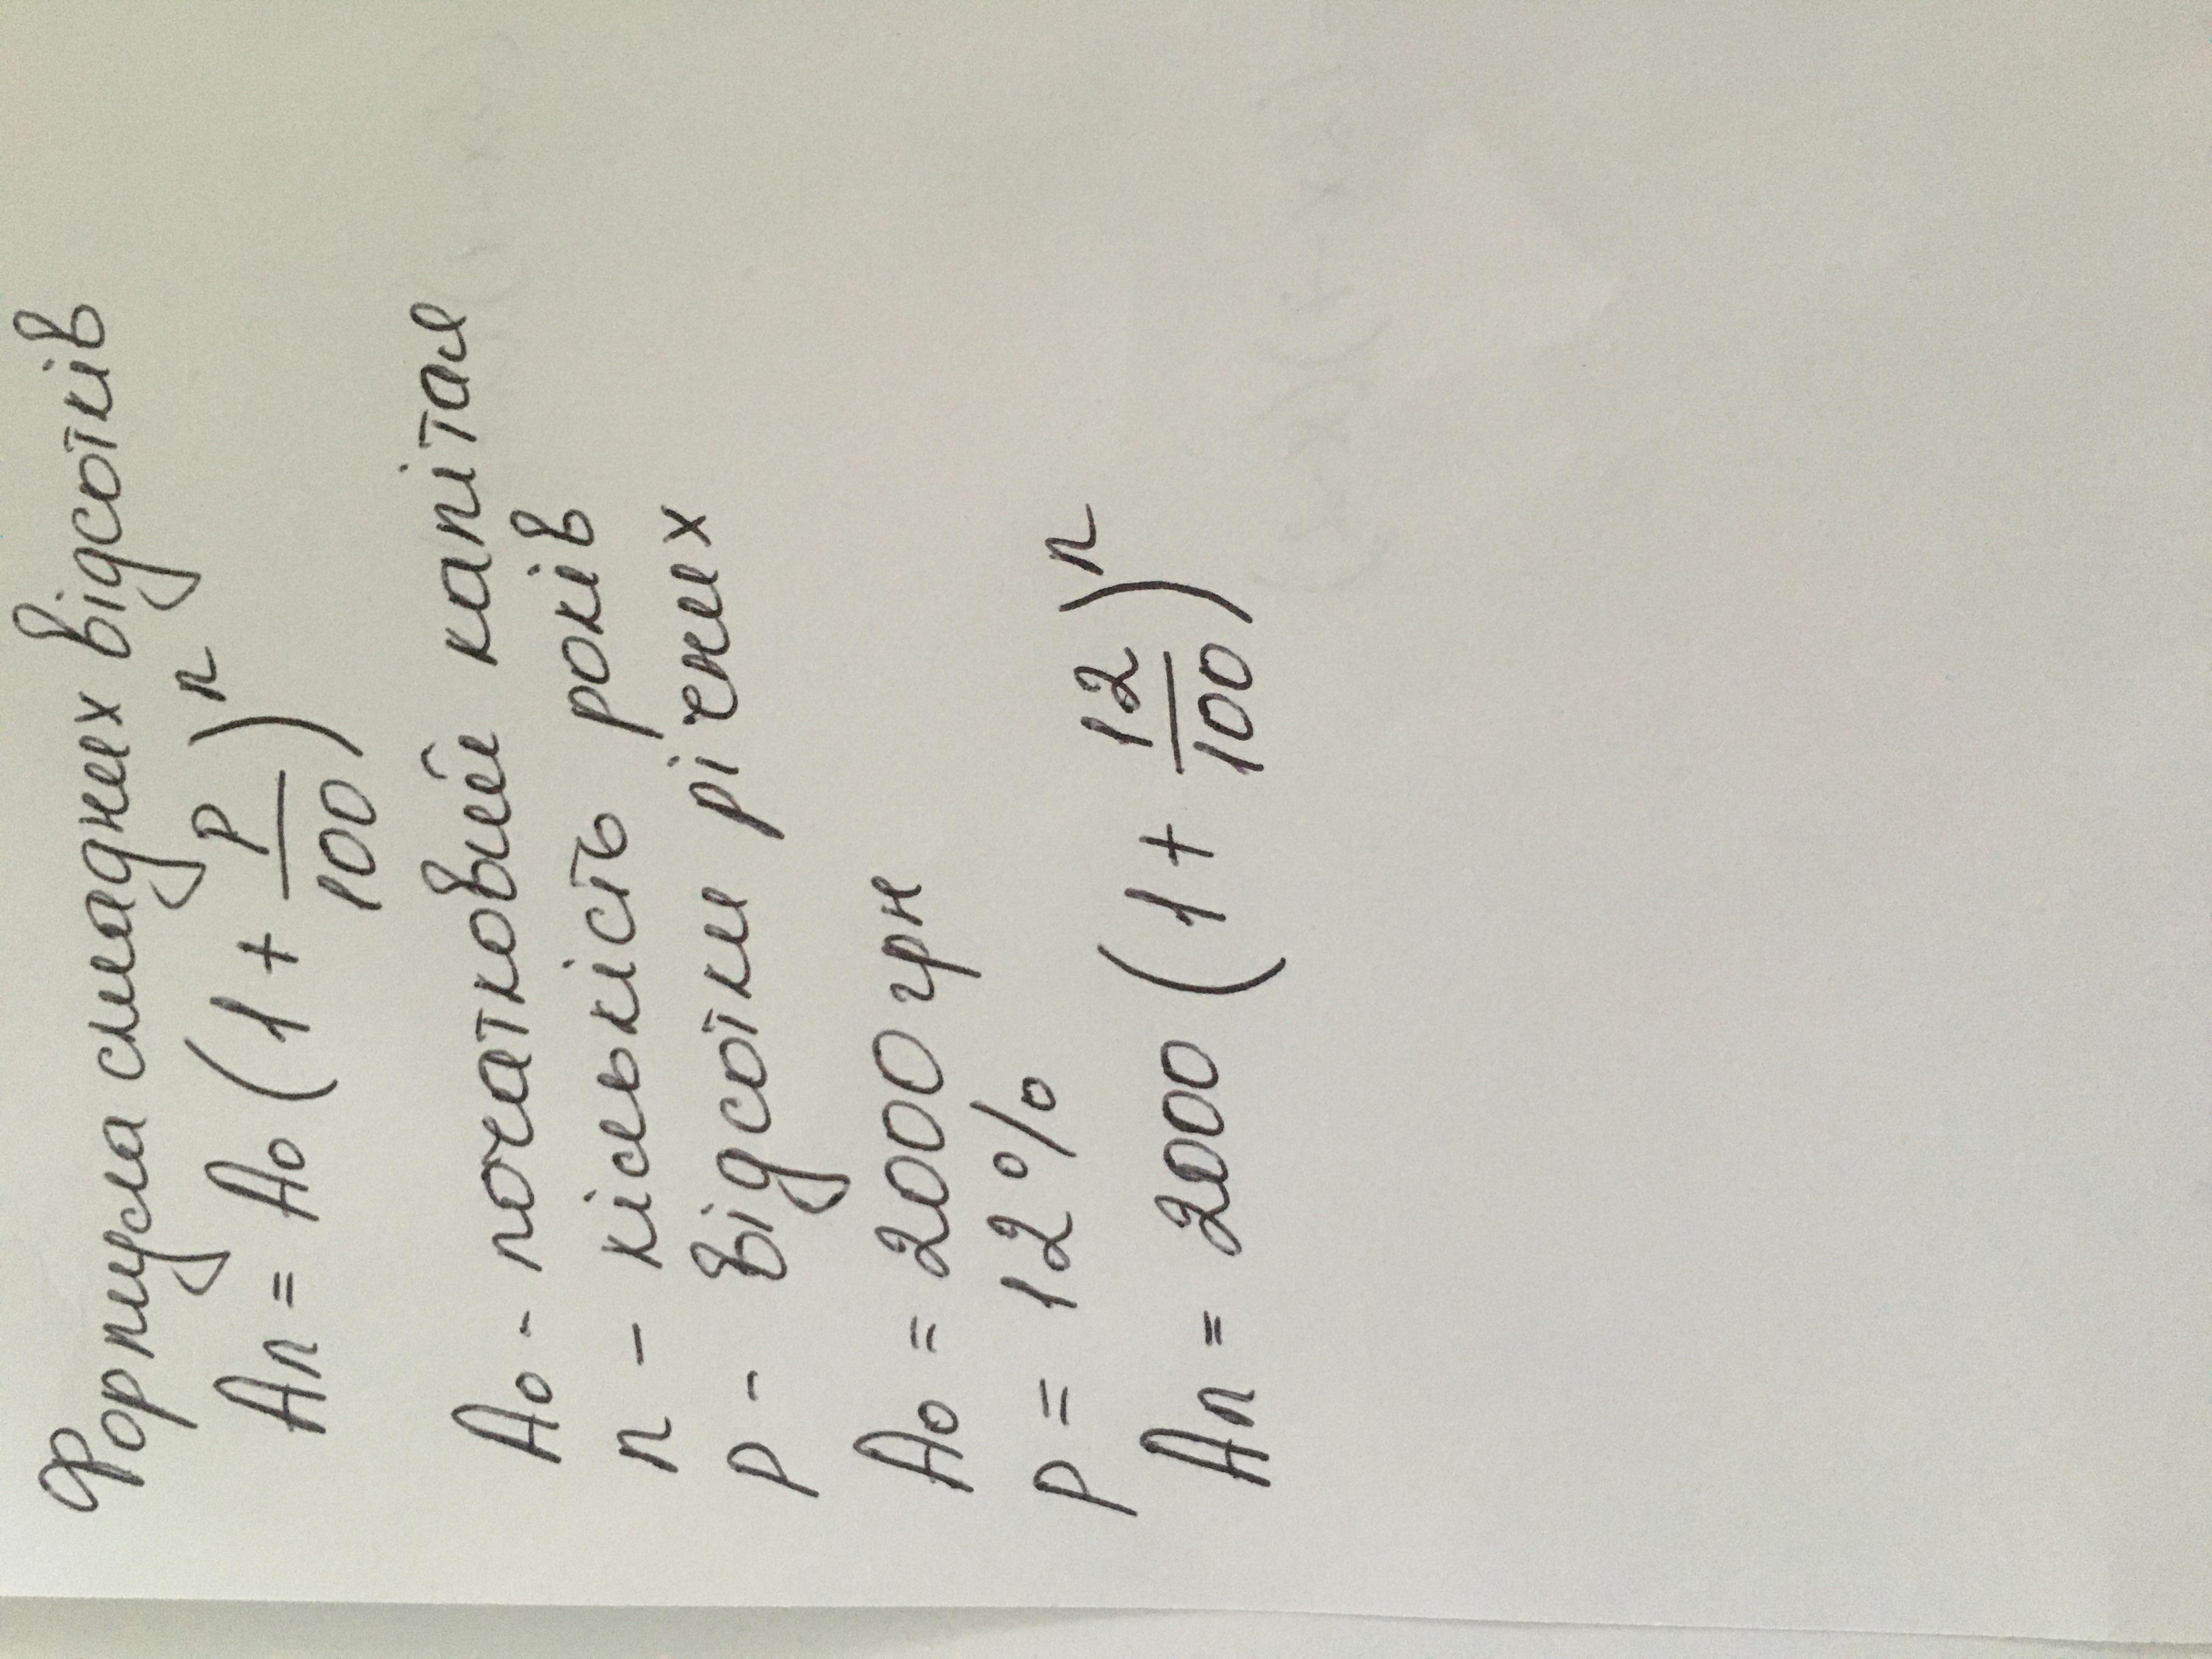 Формула складних відсотків
Aₙ = A₀ (1 + p/100)ⁿ
A₀ - початковий капітал
n - кількість років
p - відсотки річних
A₀ = 2000 грн
p = 12 %
Aₙ = 2000 (1 + 12/100)ⁿ